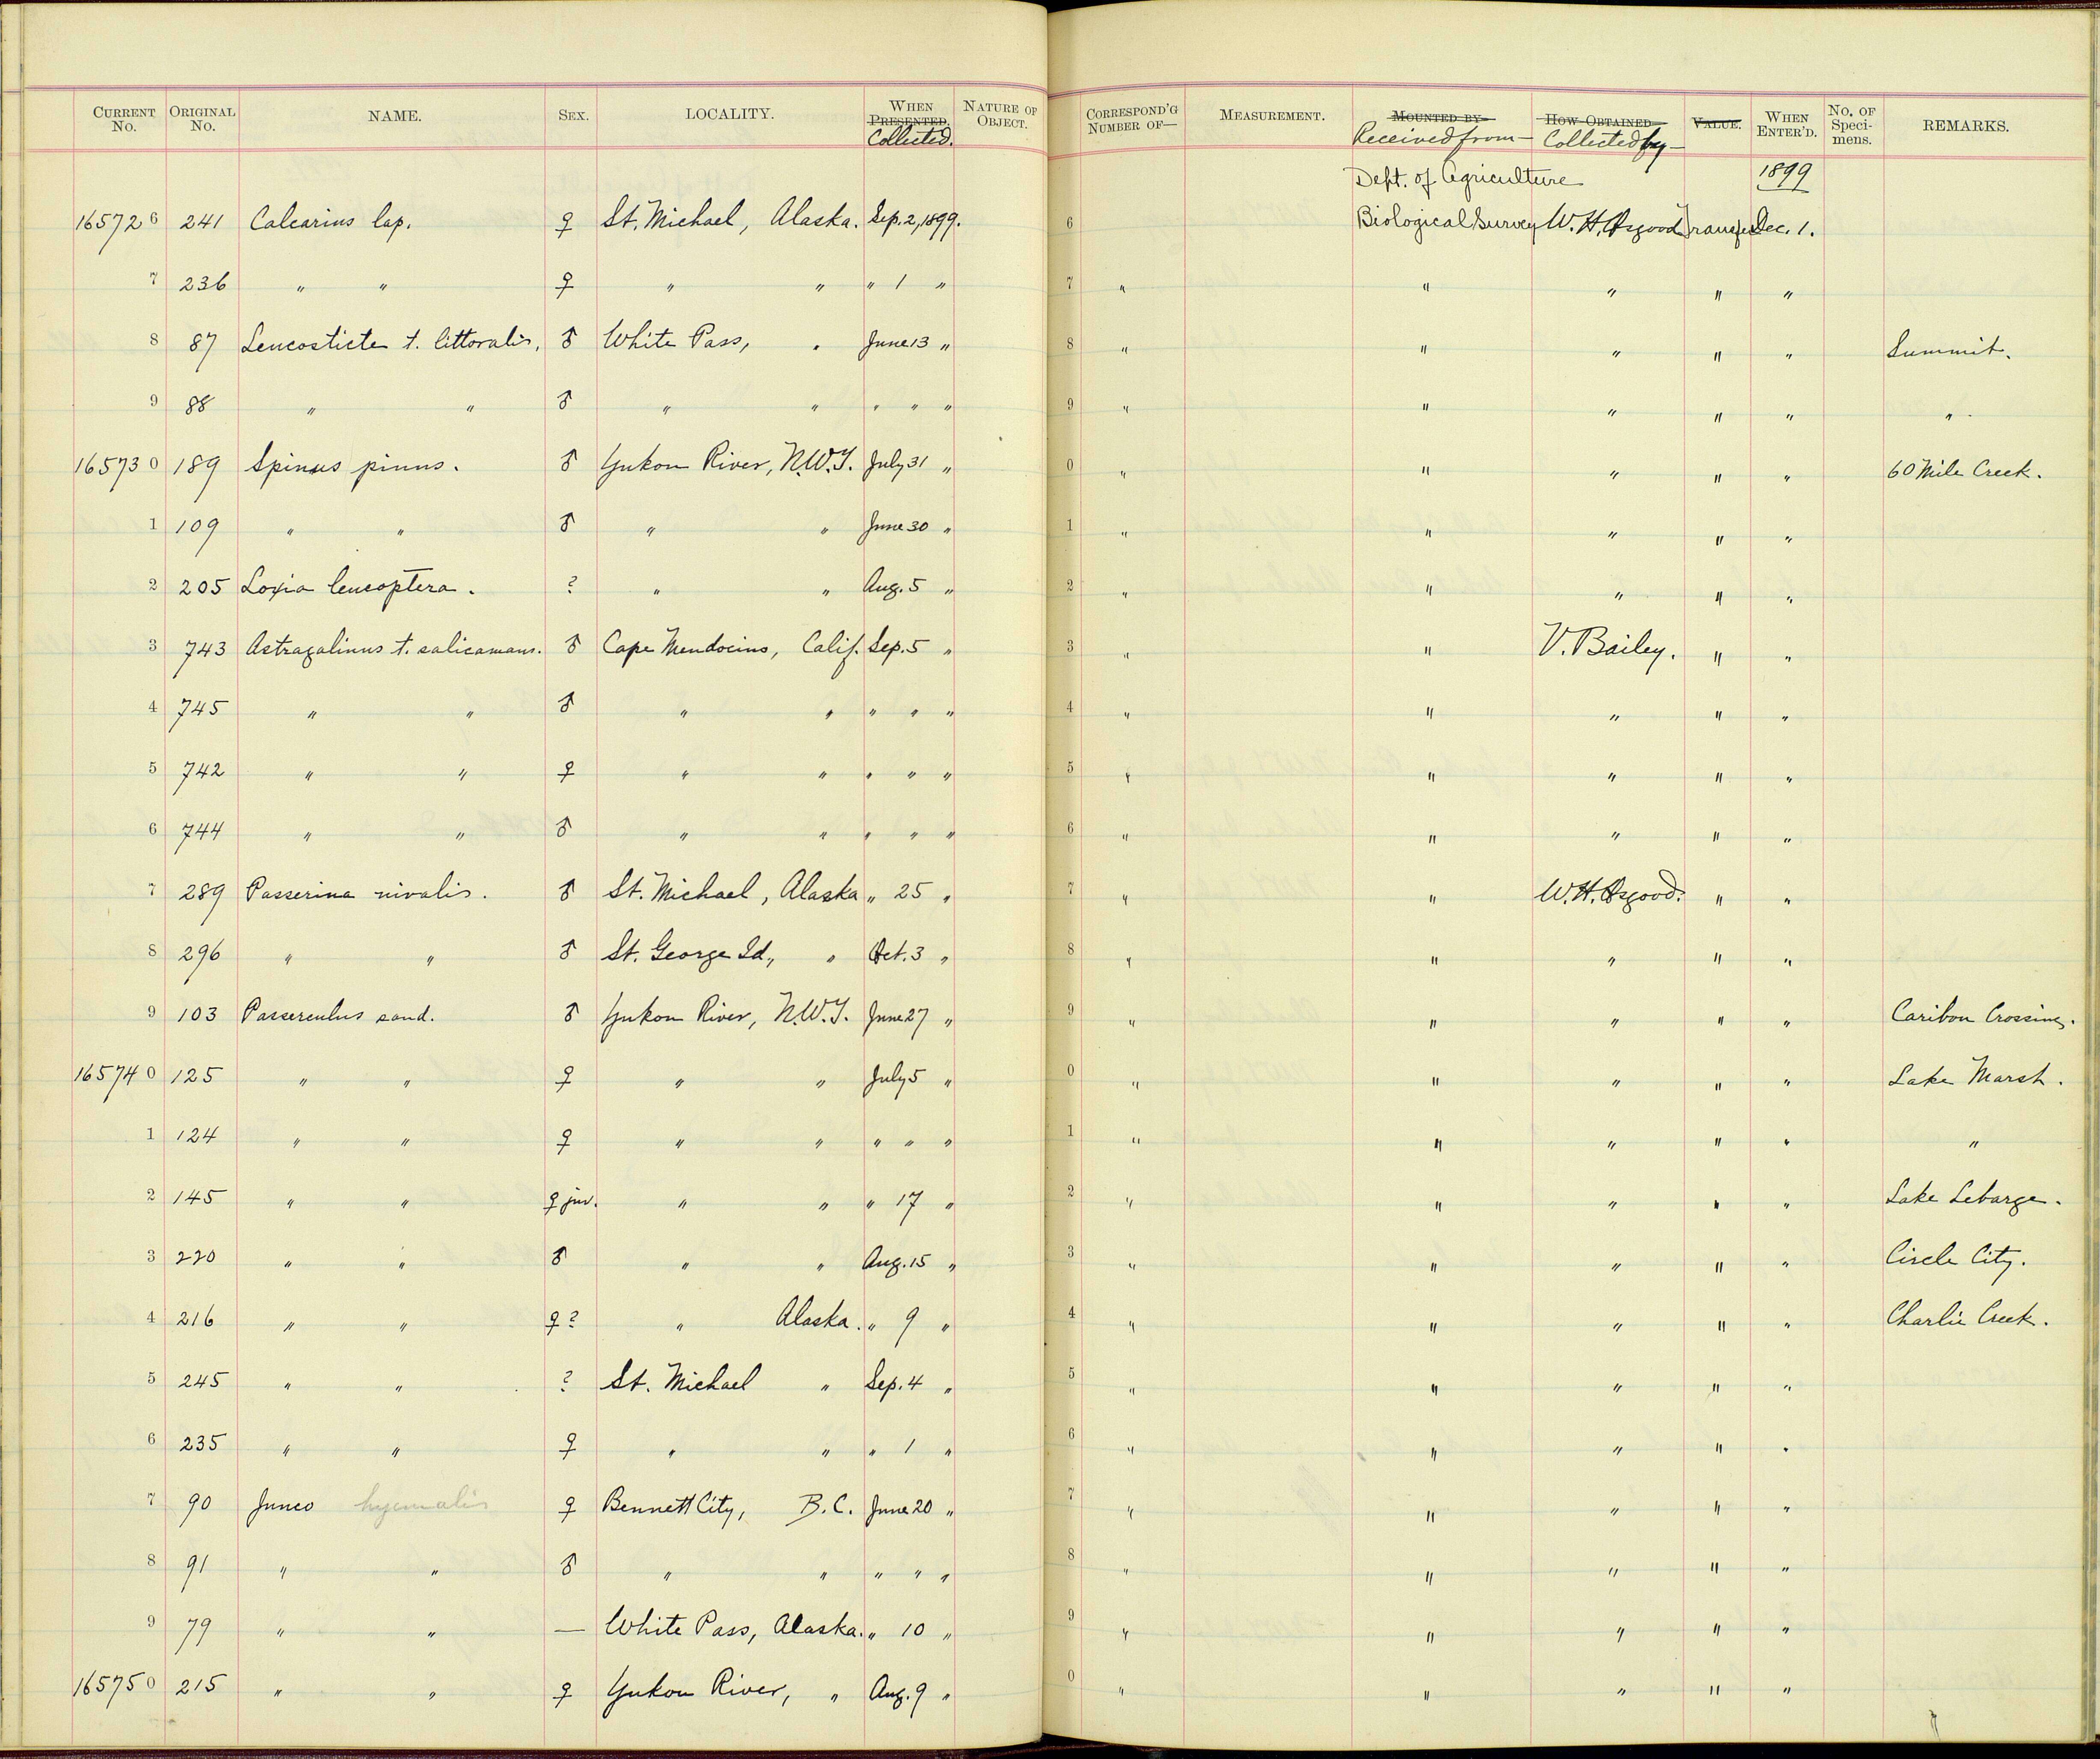 CURRENT No. ORIGINAL No. NAME. SEX. LOCALITY. WHEN PRESENTED. Collected. NATURE OF OBJECT. CORRESPOND'G NUMBER OF— MEASUREMENT. MOUNTED BY— Received from— HOW OBTAINED— Collected by— VALUE. WHEN ENTER'D. No. OF Speci-mens. REMARKS.
Dept. of Agriculture 1899
16572 6 241 Calcarius lap. ♀ St. Michael, Alaska. Sep. 2, 1899. 6 Biological Survey W. H. Osgood Transfer Dec. 1.
7 236 " " ♀ " " " 1 " 7 " " " " "
8 87 Leucosticte t. littoralis. ♂ White Pass, " June 13 " 8 " " " " " Summit.
9 88 " " ♂ " " " " " 9 " " " " " "
16573 0 189 Spinus pinus. ♂ Yukon River, N.W.T. July 31 " 0 " " " " " 60 Mile Creek.
1 109 " " ♂ " " June 30 " 1 " " " " "
2 205 Loxia leucoptera. ? " " Aug. 5 " 2 " " " " "
3 743 Astragalinus t. salicamans. ♂ Cape Mendocino, Calif. Sep. 5 " 3 " " V. Bailey. " "
4 745 " " ♂ " " " " " 4 " " " " "
5 742 " " ♀ " " " " " 5 " " " " "
6 744 " " ♂ " " " " " 6 " " " " "
7 289 Passerina nivalis. ♂ St. Michael, Alaska " 25 " 7 " " W. H. Osgood. " "
8 296 " " ♂ St. George Id., " Oct. 3 " 8 " " " " "
9 103 Passerculus sand. ♂ Yukon River, N.W.T. June 27 " 9 " " " " " Caribou Crossing.
16574 0 125 " " ♀ " " July 5 " 0 " " " " " Lake Marsh.
1 124 " " ♀ " " " " " 1 " " " " " "
2 145 " " ♀ juv. " " " 17 " 2 " " " " " Lake Lebarge.
3 220 " " ♂ " " Aug. 15 " 3 " " " " " Circle City.
4 216 " " ♀? " Alaska. " 9 " 4 " " " " " Charlie Creek.
5 245 " " ? St. Michael " Sep. 4 " 5 " " " " "
6 235 " " ♀ " " " 1 " 6 " " " " "
7 90 Junco hyemalis ♀ Bennett City, B.C. June 20 " 7 " " " " "
8 91 " " ♂ " " " " " 8 " " " " "
9 79 " " — White Pass, Alaska. " 10 " 9 " " " " "
16575 0 215 " " ♀ Yukon River, " Aug. 9 " 0 " " " " "